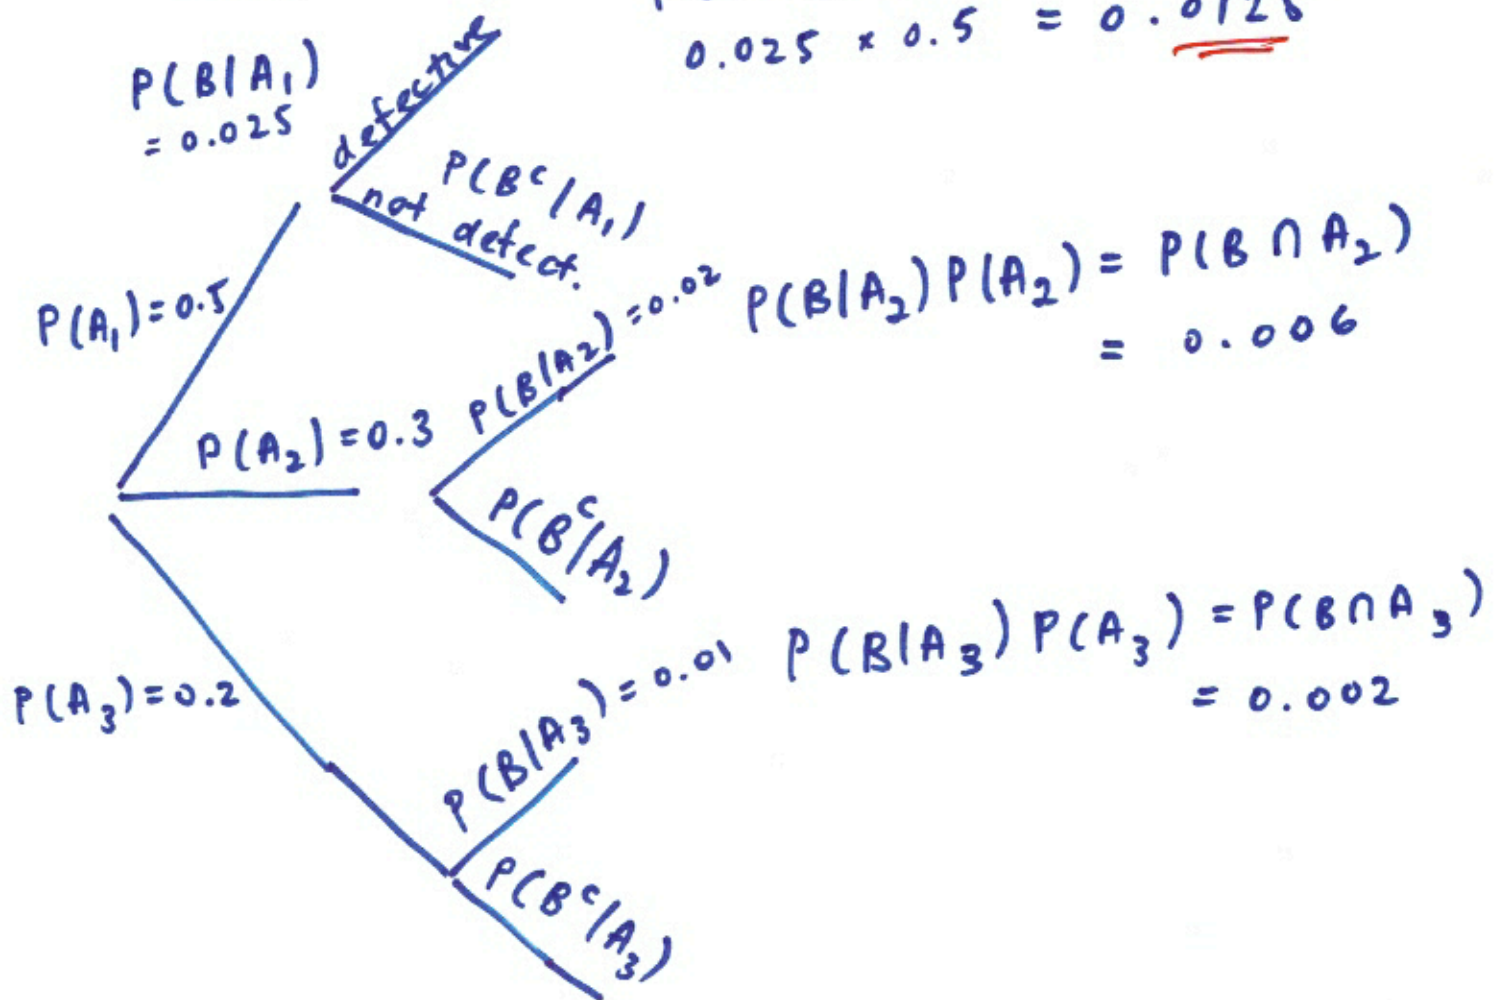 0.025 * 0.5 = 0.0125
P(B|A₁)
= 0.025
defective
P(Bᶜ|A₁)
not defect.
P(A₁)=0.5
P(B|A2) =0.02
P(B|A₂)P(A₂) = P(B∩A₂)
= 0.006
P(A₂)=0.3
P(Bᶜ|A₂)
P(A₃)=0.2
P(B|A₃)=0.01
P(B|A₃)P(A₃) = P(B∩A₃)
= 0.002
P(Bᶜ|A₃)